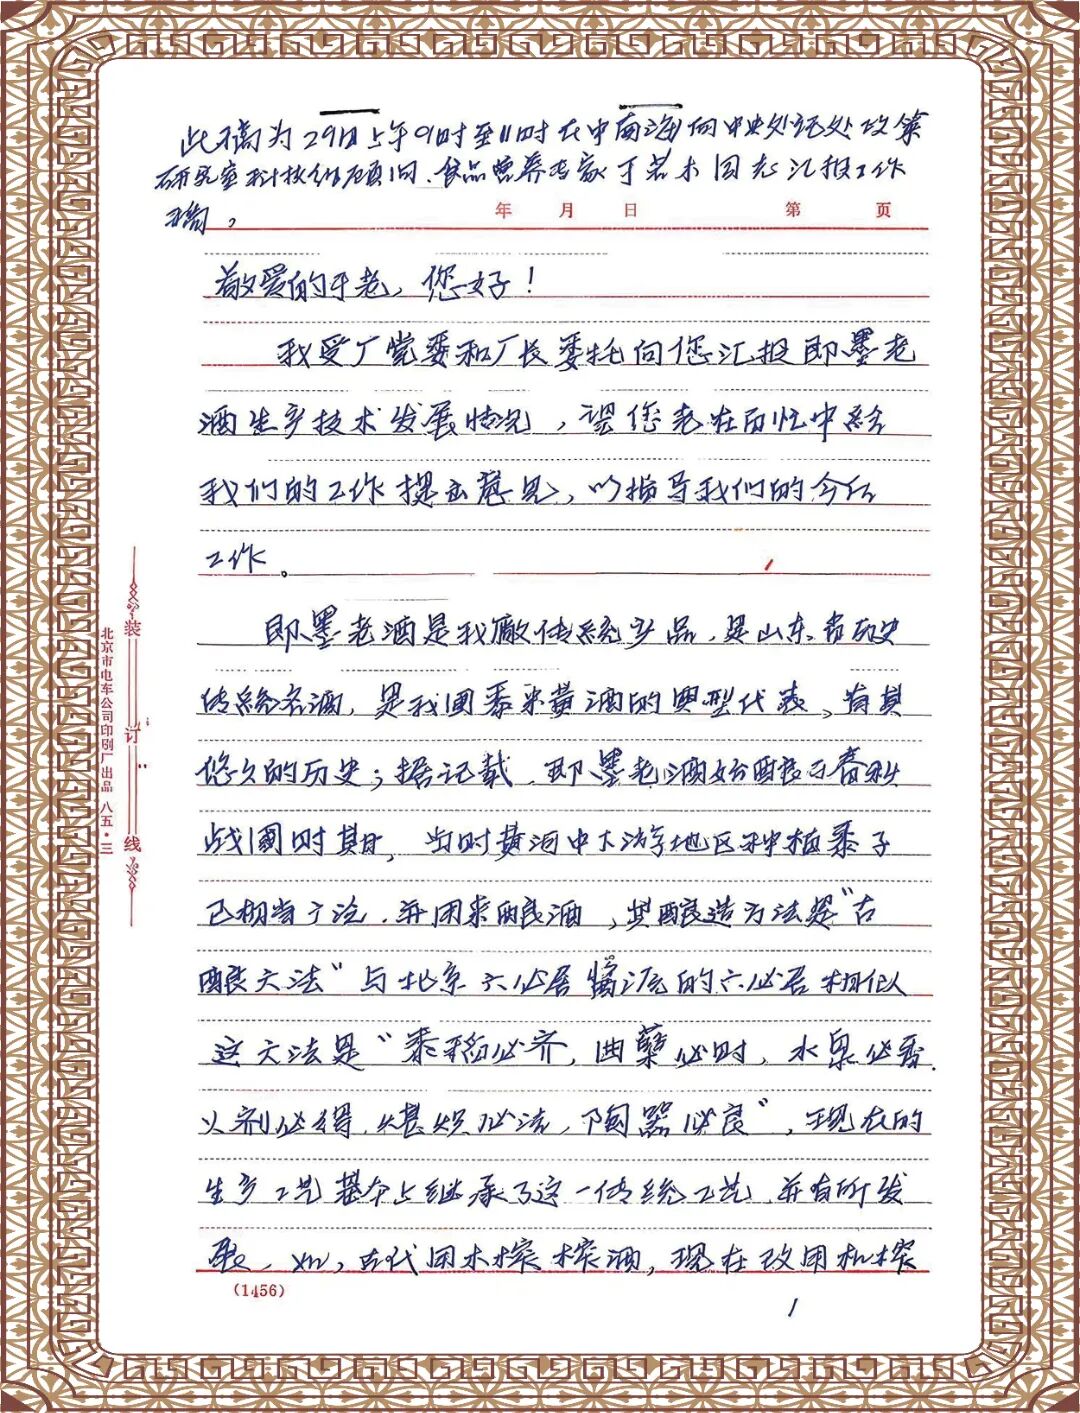 此稿为29日上午9时至11时在中南海向中央书记处政策
研究室科技组顾问、食品营养专家于若木同志汇报工作
稿。
年 月 日 第 页
敬爱的于老，您好！
我受厂党委和厂长委托向您汇报即墨老
酒生产技术发展情况，望您老在百忙中给
我们的工作提出意见，以指导我们的今后
工作。
即墨老酒是我廠传统产品，是山东省历史
传统名酒，是我国黍米黄酒的典型代表，有其
悠久的历史；据记载，即墨老酒始酿于春秋
战國时期，当时黄河中下游地区种植黍子
已相当广泛，并用来酿酒，其酿造方法是“古
酿六法”与北京六必居酱 的六必居相似
这六法是“黍稻必齐，曲蘖必时，水泉必香，
火剂必得，湛炽必洁，陶器必良”，现在的
生产工艺基本上继承了这一传统工艺，并有所发
展，如，古代用木榨榨酒，现在改用机榨
(1456)
1
装订线
北京市电车公司印刷厂出品 八五·三